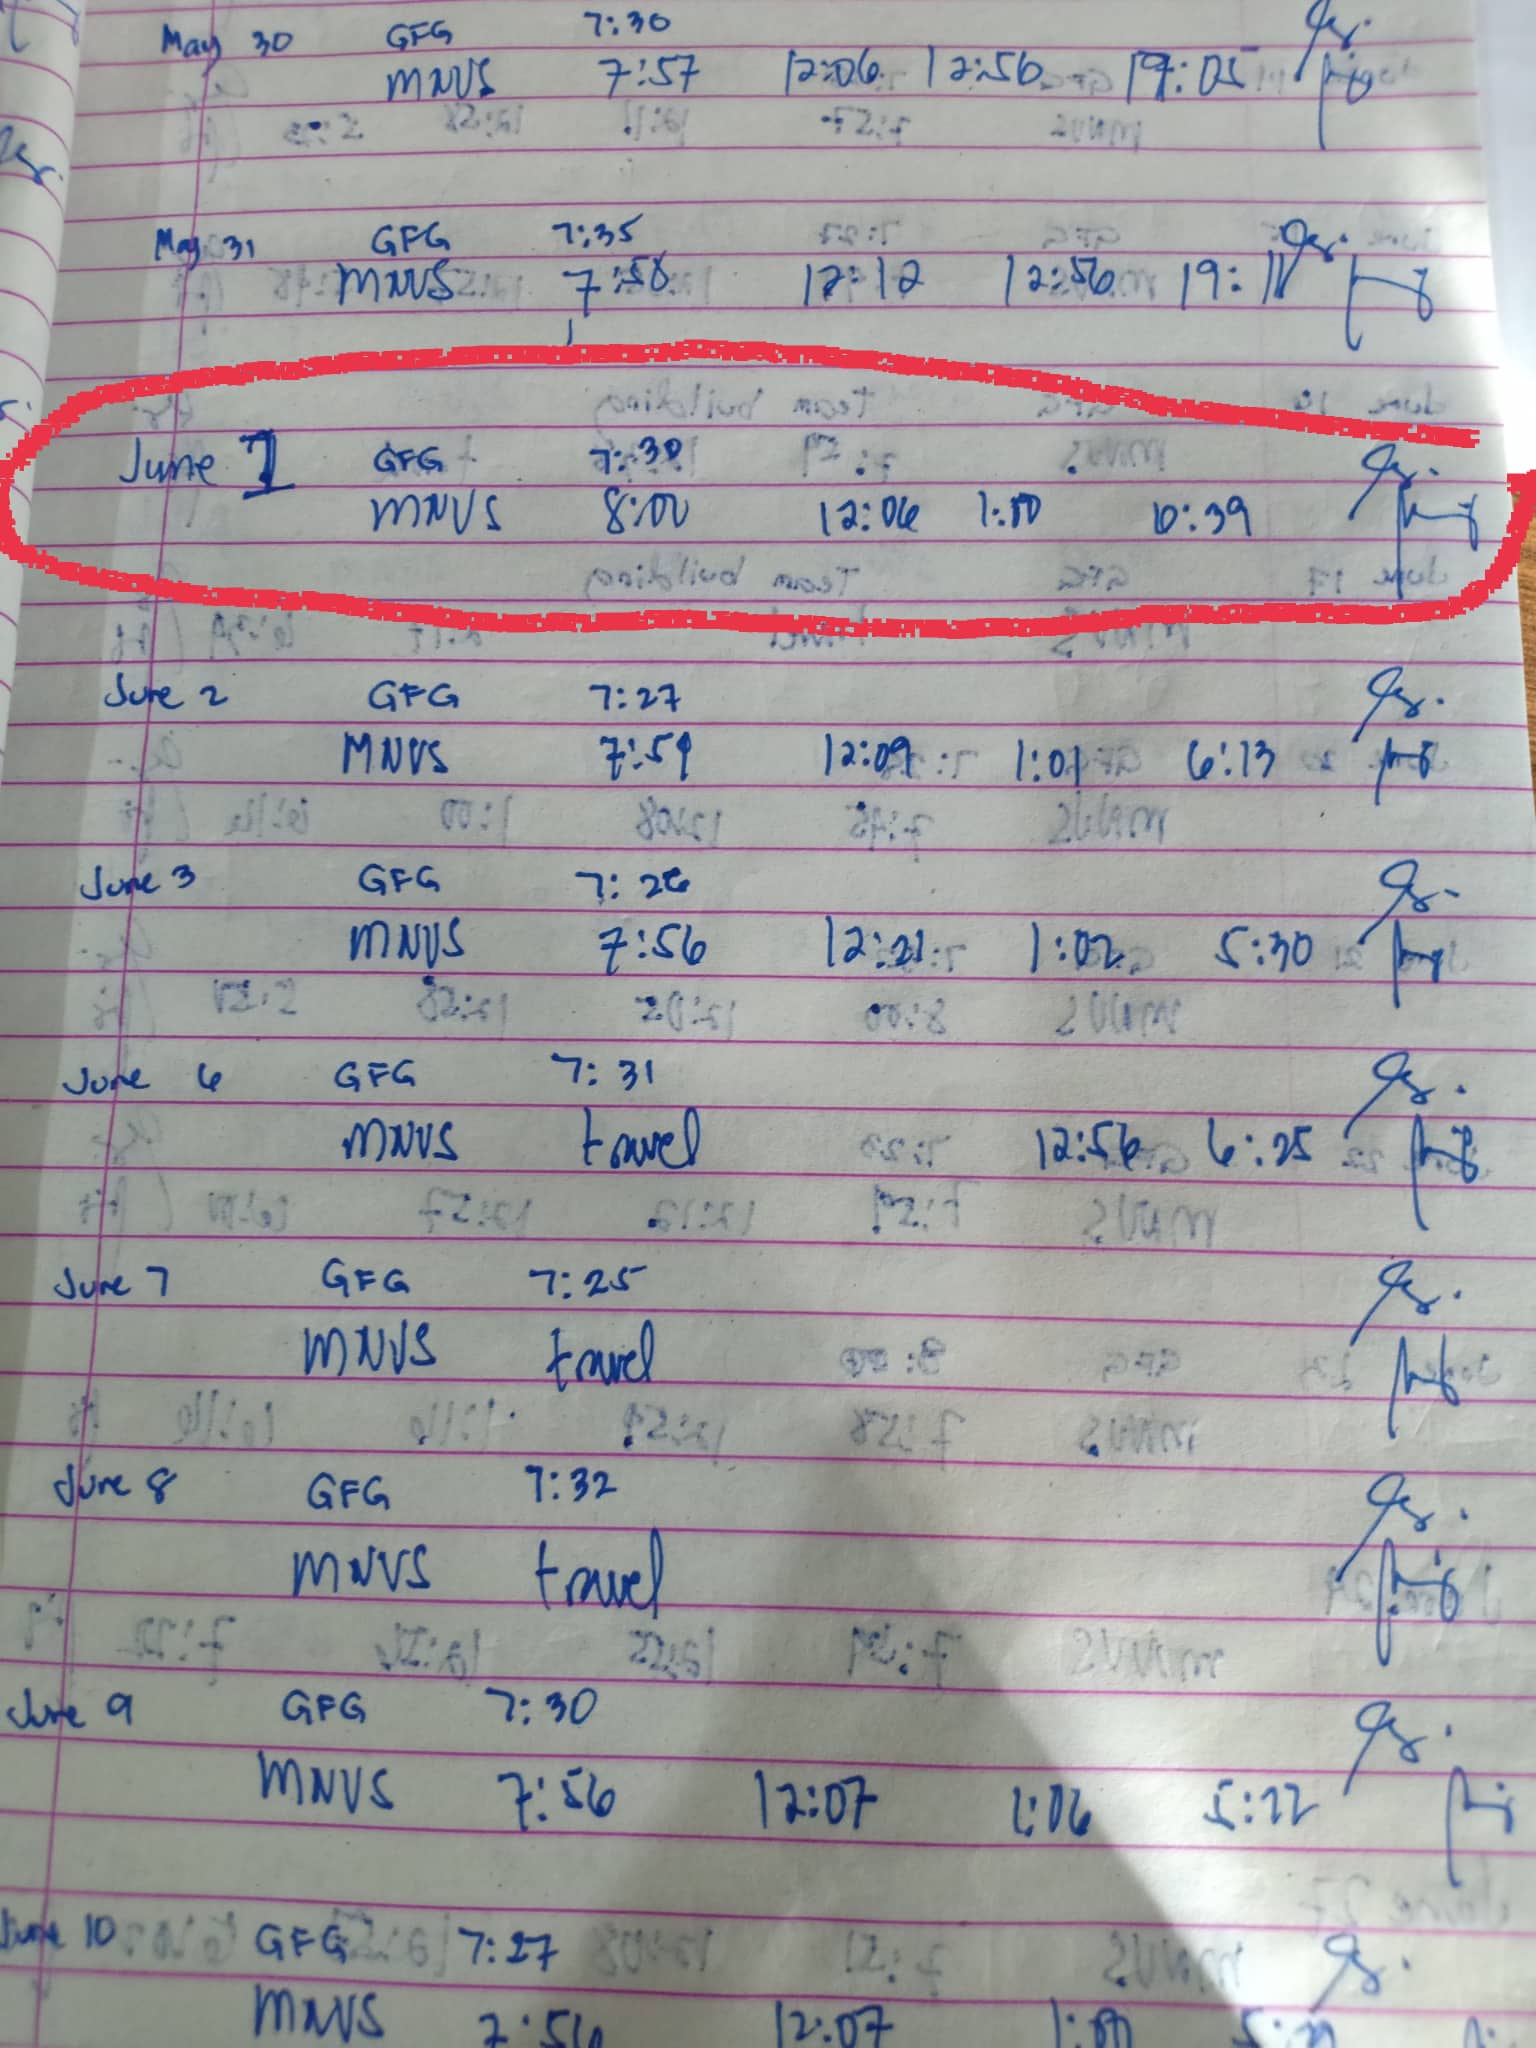 May 30 GFG 7:30
MNVS 7:57 12:06 12:56 19:05
May 31 GFG 7:35
MNVS 7:58 12:12 12:56 19:11
June 1 GFG 7:30
MNVS 8:00 12:06 1:00 6:39
June 2 GFG 7:27
MNVS 7:59 12:09 1:01 6:13
June 3 GFG 7:26
MNVS 7:56 12:21 1:02 5:30
June 6 GFG 7:31
MNVS travel 12:56 6:25
June 7 GFG 7:25
MNVS travel
June 8 GFG 7:32
MNVS travel
June 9 GFG 7:30
MNVS 7:56 12:07 1:06 5:22
June 10 GFG 7:27
MNVS 7:56 12:07 1:00